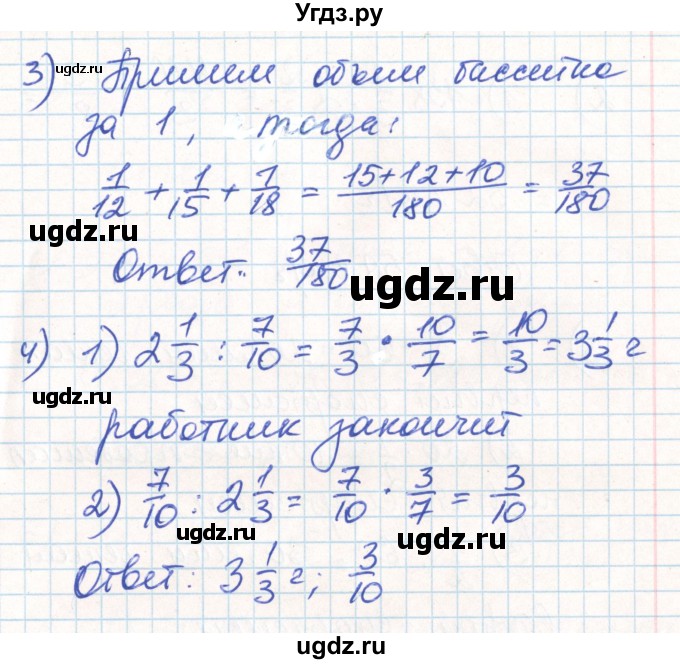 Угдз.ру
3) Примем объем бассейна
ugdz.ru ugdz.ru
за 1, тогда:
1/12 + 1/15 + 1/18 = (15+12+10)/180 = 37/180
ugdz.ru
Ответ: 37/180
ugdz.ru
4) 1) 2 1/3 : 7/10 = 7/3 · 10/7 = 10/3 = 3 1/3 г
ugdz.ru
работник закончит
2) 7/10 : 2 1/3 = 7/10 · 3/7 = 3/10
ugdz.ru ugdz.ru
Ответ: 3 1/3 г; 3/10
ugdz.ru